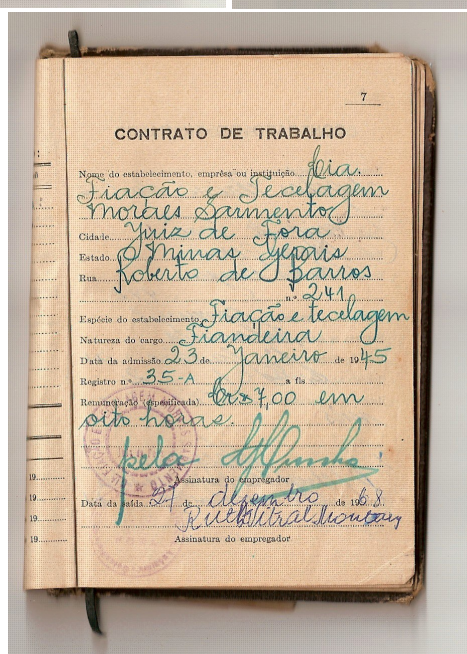 7
CONTRATO DE TRABALHO
Nome do estabelecimento, emprêsa ou instituição Cia.
Fiação e Tecelagem
Moraes Sarmento
Cidade Juiz de Fora
Estado Minas Gerais
Rua Roberto de Barros
n.º 241
Espécie do estabelecimento Fiação e tecelagem
Natureza do cargo Fiandeira
Data da admissão 23 de Janeiro de 1945
Registro n.º 35-A a fls
Remuneração (especificada) Cr$ 7,00 em
oito horas.
pela
Assinatura do empregador
Data da saída 21 de dezembro de 1968.
Assinatura do empregador
19
19
19
19